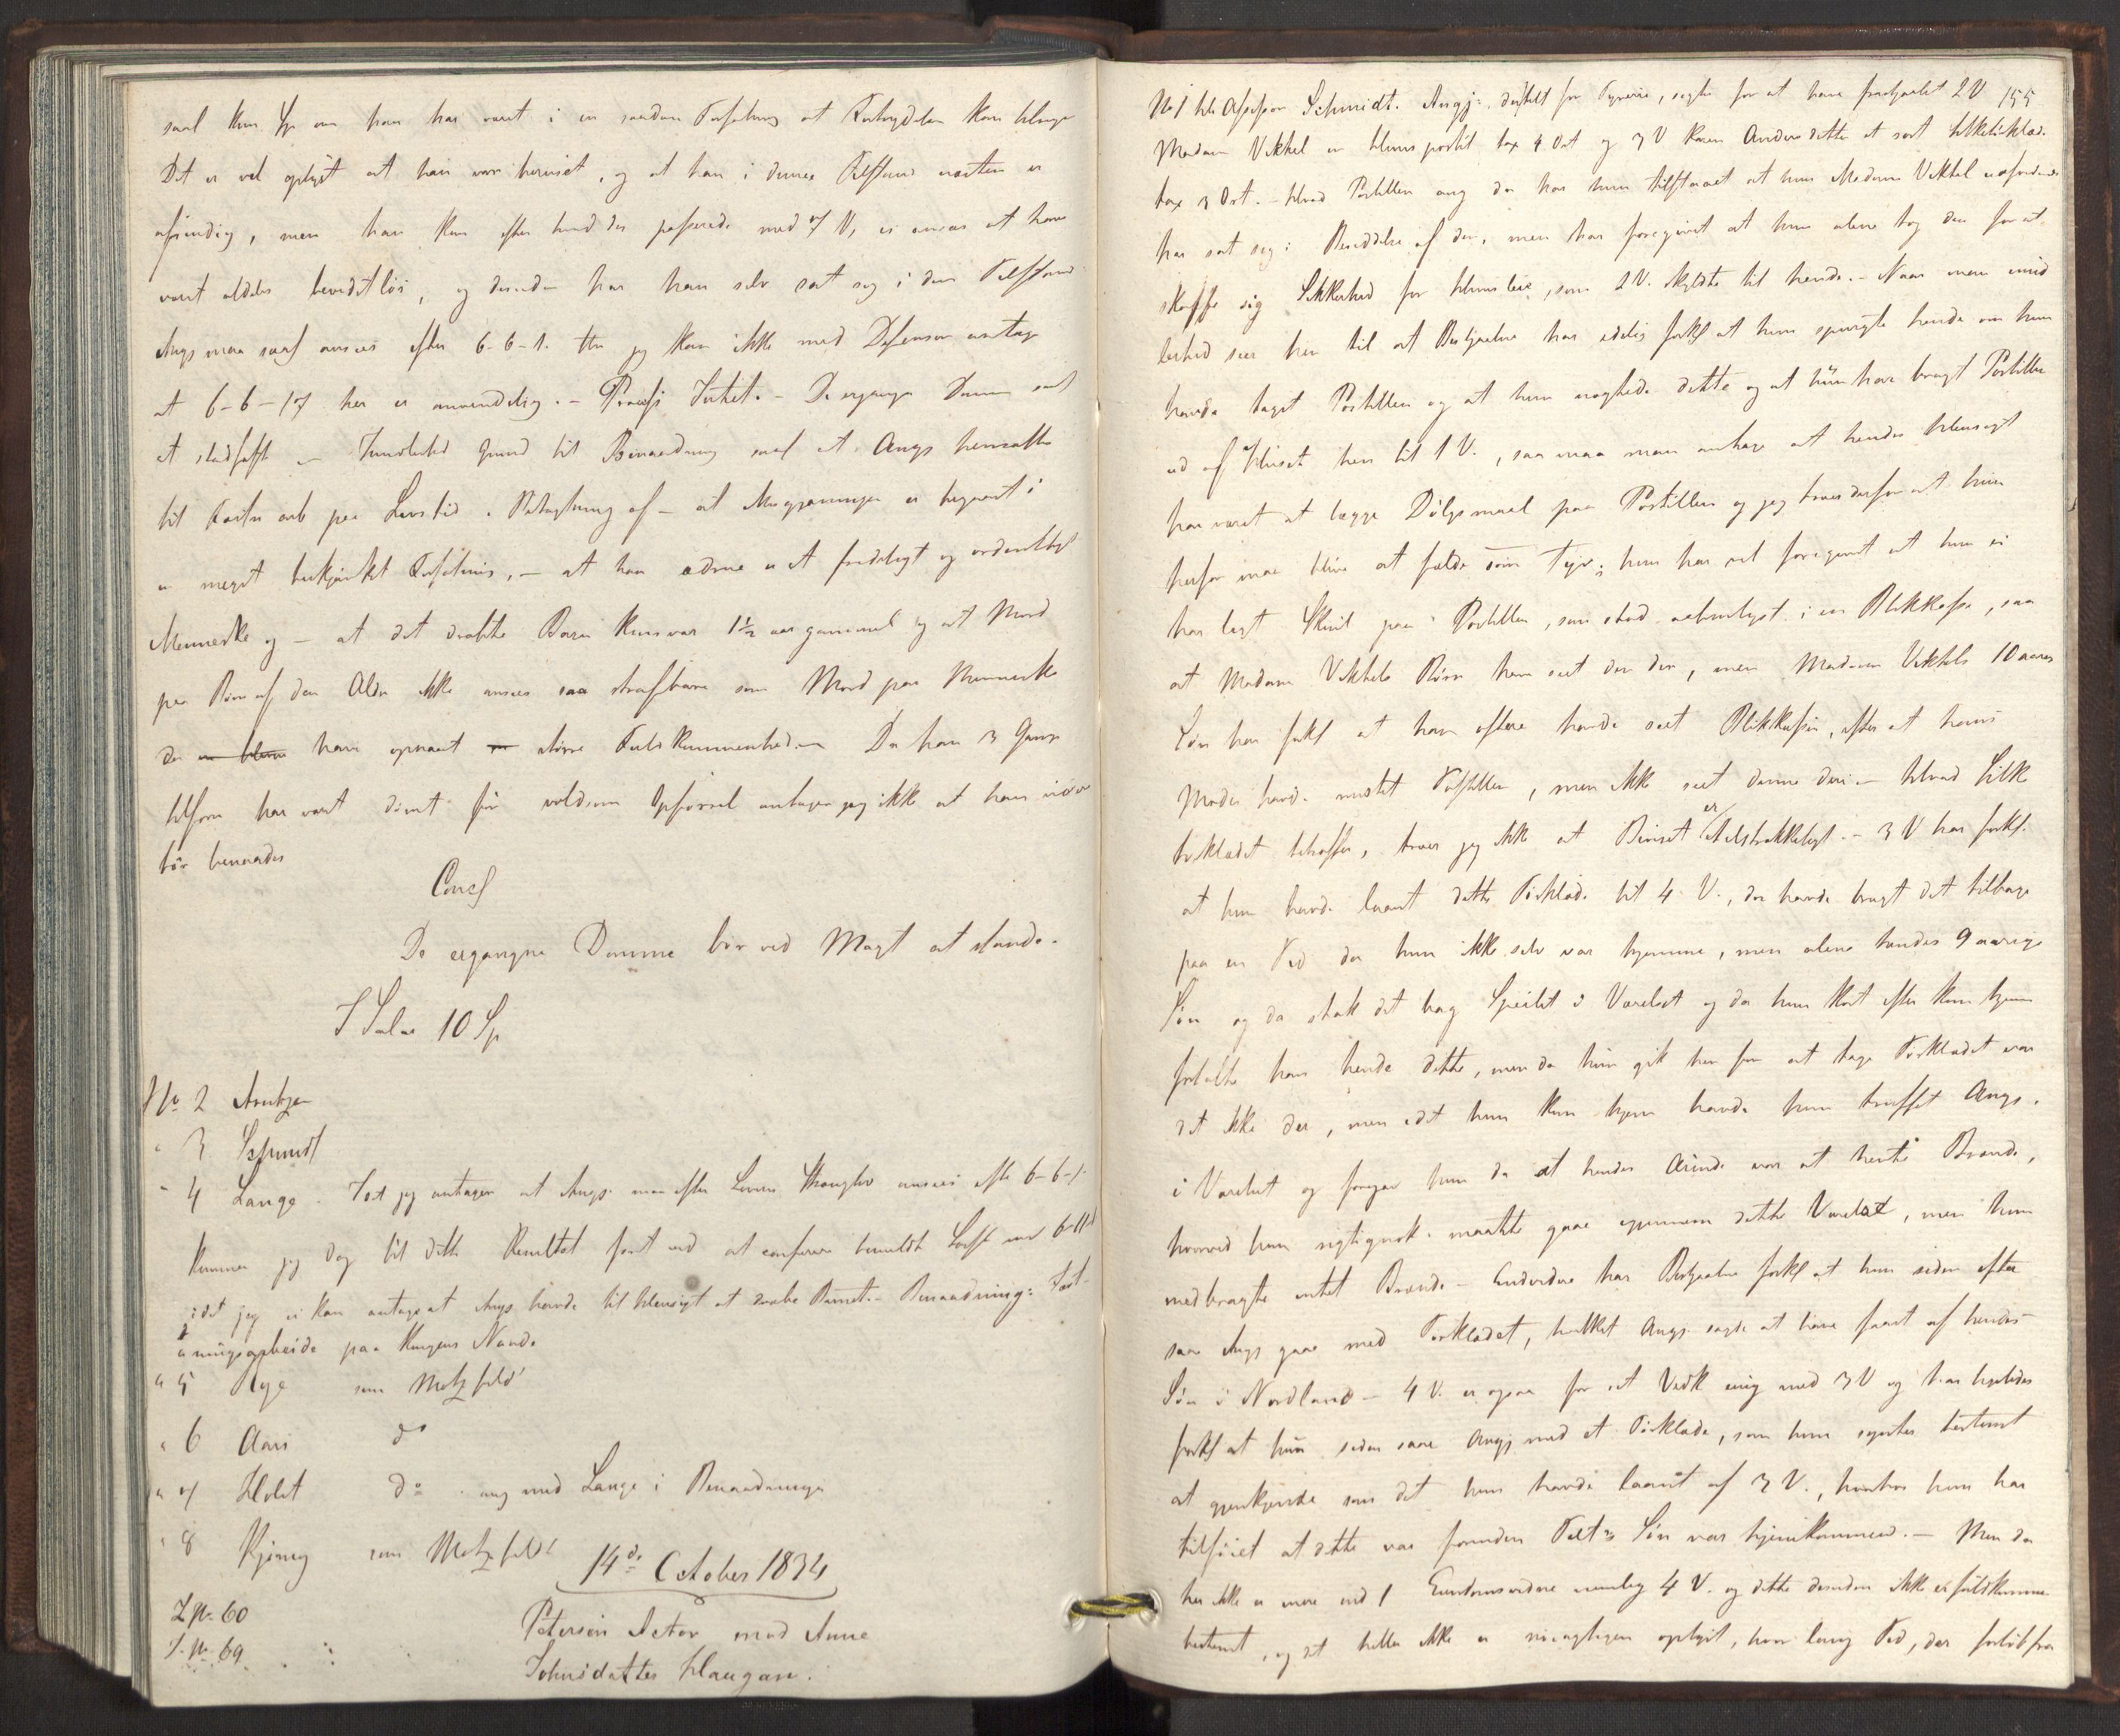 saal kun Sp om han har været i en saadan Forfatning at Forbrydelsen kan tilregn
Det er vel oplyst at han var beruset, og at han i denne Tilstand næsten er
afsindig, men han kan efter hvad der passerede med 7 V, ei ansees at have
været aldeles bevidstløs, og desuden har han selv sat sig i den Tilstand
Angj maa saal ansees efter 6-6-1. thi jeg kan ikke med Defensor antage
at 6-6-17 her er anvendelig. - De ergangne Domme saal
at stadfæste - Grund til Benaadning saal at Angj hensættes
til Fæstn arb paa Livstid i Betragtning af - at Misgjerningen er begaaet i
en meget beskjænket Forfatning, - at han ædrue er et fredeligt og ordentligt
Menneske og - at det dræbte Barn kun var 1½ aar gammel og at Mord
paa Børn af den Alder ikke ansees saa strafbare som Mord paa Mennesker
der have opnaaet større Fuldkommenhed. - Da han 3 Gange
tilforn har været dømt for voldsom Opførsel antager jeg ikke at han videre
bør benaades
Concl
De ergangne Domme bør ved Magt at stande.
I Salar 10 Sp
No 2 Arntzen
" 3 Schmidt
" 4 Lange. Skjønt jeg antager at Angj. maa efter Lovens Strænghed ansees efter 6-6-1.
kommer jeg dog til dette Resultat først ved at conferere bemeldte Lovst med 6-11
idet jeg ei kan antage at Angj havde til Hensigt at dræbe Barnet. - Benaadning: Fæst-
ningsarbeide paa Kongens Naade
" 5 Rye som Motzfeldt
" 6 Aars do
" 7 Holst do enig med Lange i Benaadningen
" 8 Bjerreg som Motzfeldt
14de October 1834
L No 60
S. No 69
Petersen Actor mod Anne
Johnsdatter Haugan.
155
No 1 hr Assessor Schmidt. Angj: tiltalt for Tyverie, sigtes for at have frastjaalet 2 V
Madam Vekkel en Huuspostil tax 4 Ort og 3 V Karen Andersdatter et sort Silketørklæde
tax 3 Ort. - Hvad Postillen ang da har hun tilstaaet at hun Madam Vekkel uafvidende
har sat sig i Besiddelse af den, men har foregivet at hun alene tog den for at
skaffe sig Sikkerhed for Huusleie, som 2 V. skyldte til hende. - Naar man imid
lertid seer hen til at Bestjaalne har edelig forkl at hun spurgte hende om hun
havde taget Postillen og at hun nægtede dette og at hun har bragt Postillen
ud af Huset hen til 1 V., saa maa man antage at hendes Hensigt
har været at lægge Dølgsmaal paa Postillen og jeg troer derfor at hun
herfor maa blive at fælde som Tyv; hun har vel foregivet at hun ei
har lagt Skjul paa Postillen, som stod aabenlyst i en Blikkasse, saa
at Madam Vekkels Børn har seet den der, men Madam Vekkels 10 aars
Søn har forkl at han oftere havde seet Blikkassen, efter at hans
Moder havde mistet Postillen, men ikke seet denne deri - Hvad Silke
tørklædet betræffer, troer jeg ikke at Beviset er tilstrækkeligt. - 3 V har forkl.
at hun havde laant dette Tørklæde til 4 V., der havde bragt det tilbage
paa en Tid da hun ikke selv var hjemme, men alene hendes 9 aarige
Søn og da stak det bag Speilet i Værelset og da hun kort efter kom hjem
fortalte han hende dette, men da hun gik hen for at tage Tørklædet var
det ikke der, men idet hun kom hjem havde hun truffet Angj.
i Værelset og foregav hun da at hendes Ærinde var at hente Brænde,
hvorved hun rigtignok maatte gaae igjennem dette Værelset, men hun
medbragte intet Brænde - Endvidere har Bestjaalne forkl at hun siden efter
saae Angj gaae med Tørklædet, hvilket Angj. sagde at have faaet af hendes
Søn i Nordland - 4 V. er ogsaa for sit Vedk enig med 3 V og har ligeledes
forkl at hun siden saae Angj med et Tørklæde, som hun syntes bestemt
at gjenkjende som det hun havde laant af 3 V., hvorhos hun har
tilføiet at dette var forinden Tilt:s Søn var hjemkommen. - Men da
her ikke er mere end 1 Eenstemmende nemlig 4 V. og dette desuden ikke er fuldkommen
bestemt, og det heller ikke er nøiagtigen oplyst, hvor lang Tid, der forløb fra